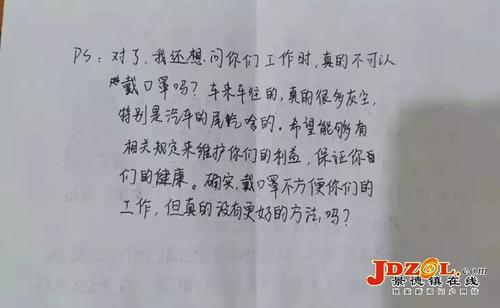 PS：对了，我还想问你们工作时，真的不可以
戴口罩吗？车来车往的，真的很多灰尘，
特别是汽车的尾气啥的。希望能够有
相关规定来维护你们的利益，保证你自
们的健康。确实，戴口罩不方便你们的
工作，但真的没有更好的方法，吗？
JDZOL.com
景德镇在线
独家新闻门户网站